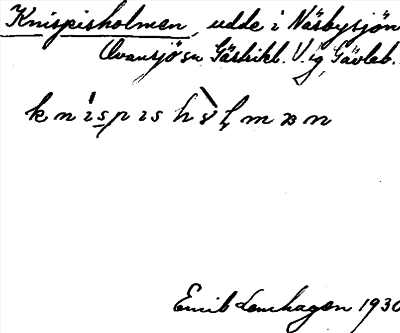 Knispisholmen, udde i Näsbysjön
Ovansjö sn Gästrikl. V.ig, Gävleb.
Emil Lenhagen 1930